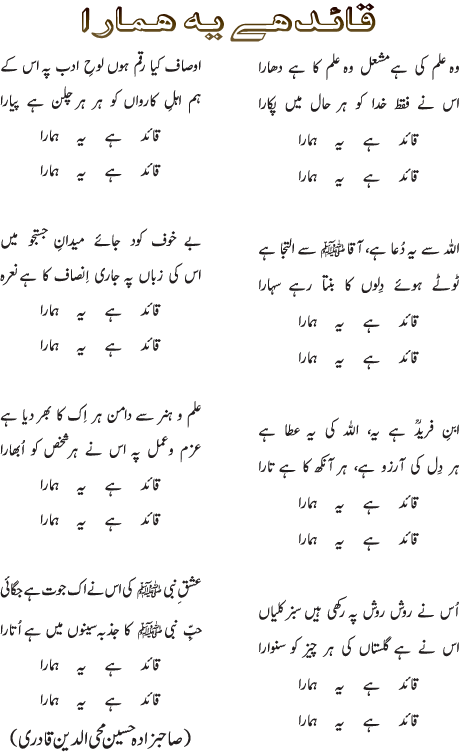 قائد ھے یہ ھمارا
وہ علم کی ہے مشعل وہ علم کا ہے دھارا
اس نے فقط خدا کو ہر حال میں پکارا
قائد ہے یہ ہمارا
قائد ہے یہ ہمارا
اللہ سے یہ دُعا ہے، آقا ﷺ سے التجا ہے
ٹوٹے ہوئے دِلوں کا بنتا رہے سہارا
قائد ہے یہ ہمارا
قائد ہے یہ ہمارا
ابنِ فریدؒ ہے یہ، اللہ کی یہ عطا ہے
ہر دِل کی آرزو ہے، ہر آنکھ کا ہے تارا
قائد ہے یہ ہمارا
قائد ہے یہ ہمارا
اُس نے روش روش پہ رکھی ہیں سبز کلیاں
اس نے ہے گلستاں کی ہر چیز کو سنوارا
قائد ہے یہ ہمارا
قائد ہے یہ ہمارا
اوصاف کیا رقم ہوں لوحِ ادب پہ اس کے
ہم اہلِ کارواں کو ہر ہر چلن ہے پیارا
قائد ہے یہ ہمارا
قائد ہے یہ ہمارا
بے خوف کود جائے میدانِ جستجو میں
اس کی زباں پہ جاری اِنصاف کا ہے نعرہ
قائد ہے یہ ہمارا
قائد ہے یہ ہمارا
علم و ہنر سے دامن ہر اِک کا بھر دیا ہے
عزم و عمل پہ اس نے ہر شخص کو اُبھارا
قائد ہے یہ ہمارا
قائد ہے یہ ہمارا
عشقِ نبی ﷺ کی اس نے اک جوت ہے جگائی
حبِّ نبی ﷺ کا جذبہ سینوں میں ہے اُتارا
قائد ہے یہ ہمارا
قائد ہے یہ ہمارا
(صاحبزادہ حسین محی الدین قادری)